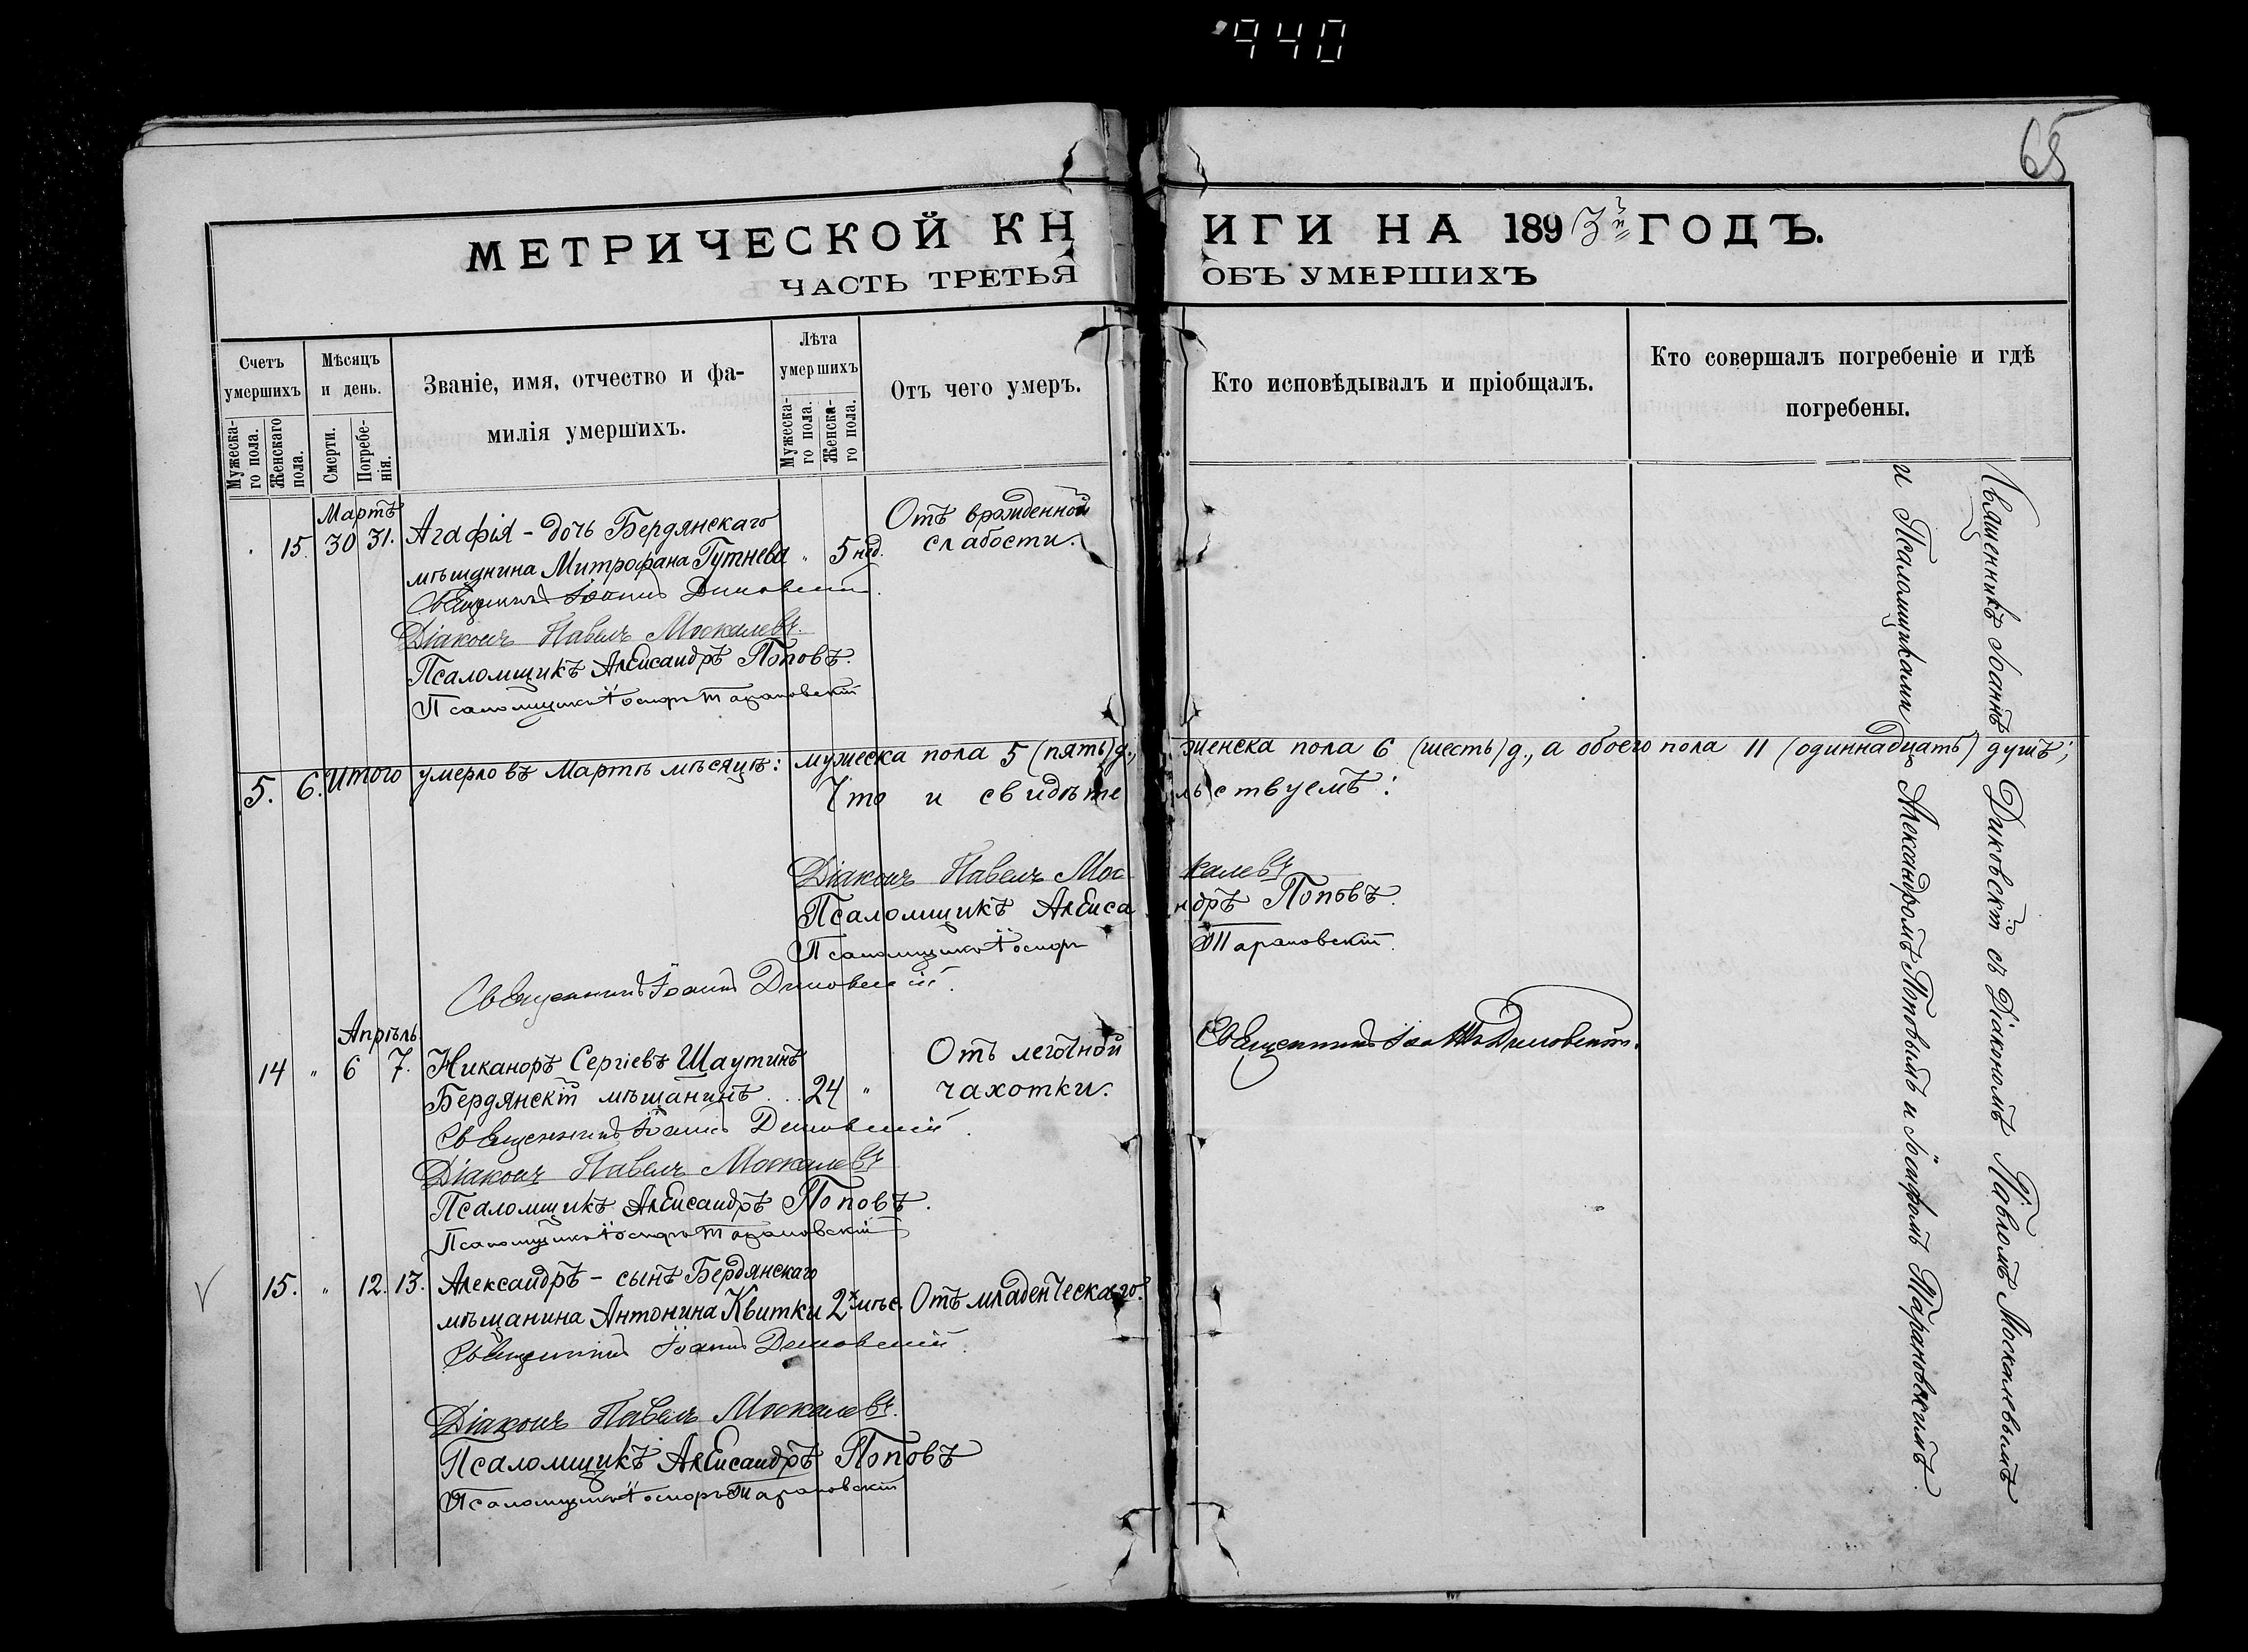 940
65
МЕТРИЧЕСКОЙ КНИГИ НА 1893й ГОДЪ.
ЧАСТЬ ТРЕТЬЯ ОБЪ УМЕРШИХЪ
Счетъ умершихъ
Мужескаго пола.
Женскаго пола.
Мѣсяцъ и день.
Смерти.
Погребенія.
Званіе, имя, отчество и фамилія умершихъ.
Лѣта умершихъ
Мужескаго пола.
Женскаго пола.
Отъ чего умеръ.
Кто исповѣдывалъ и пріобщалъ.
Кто совершалъ погребеніе и гдѣ погребены.
Мартъ
15. 30 31. Агафія - дочь Бердянскаго
мѣщанина Митрофана Гутнева " 5 нед.
Отъ врожденной
слабости.
Священникъ Іоаннъ Диковскій.
Діаконъ Павелъ Москалевъ.
Псаломщикъ Александръ Поповъ.
Псаломщикъ Іосифъ Тарановскій
5. 6. Итого умерло въ Мартѣ мѣсяцѣ: мужеска пола 5 (пять) д., женска пола 6 (шесть) д., а обоего пола 11 (одиннадцать) душъ;
Что и свидѣтельствуемъ:
Діаконъ Павелъ Москалевъ
Псаломщикъ Александръ Поповъ.
Псаломщикъ Іосифъ Тарановскій.
Священникъ Іоаннъ Диковскій.
Апрѣль
14 " 6 7. Никаноръ Сергіевъ Шаутинъ
Бердянскій мѣщанинъ . . 24 "
Отъ легочной
чахотки.
Священникъ Іоаннъ Диковскій.
Священникъ Іоаннъ Диковскій.
Діаконъ Павелъ Москалевъ
Псаломщикъ Александръ Поповъ.
Псаломщикъ Іосифъ Тарановскій
15. " 12. 13. Александръ - сынъ Бердянскаго
мѣщанина Антонина Квитки 2х мѣс. Отъ младенческаго.
Священникъ Іоаннъ Диковскій.
Діаконъ Павелъ Москалевъ.
Псаломщикъ Александръ Поповъ
Псаломщикъ Іосифъ Тарановскій
Священникъ Іоаннъ Диковскій съ Діакономъ Павломъ Москалевымъ
и Псаломщиками Александромъ Поповымъ и Іосифомъ Тарановскимъ.